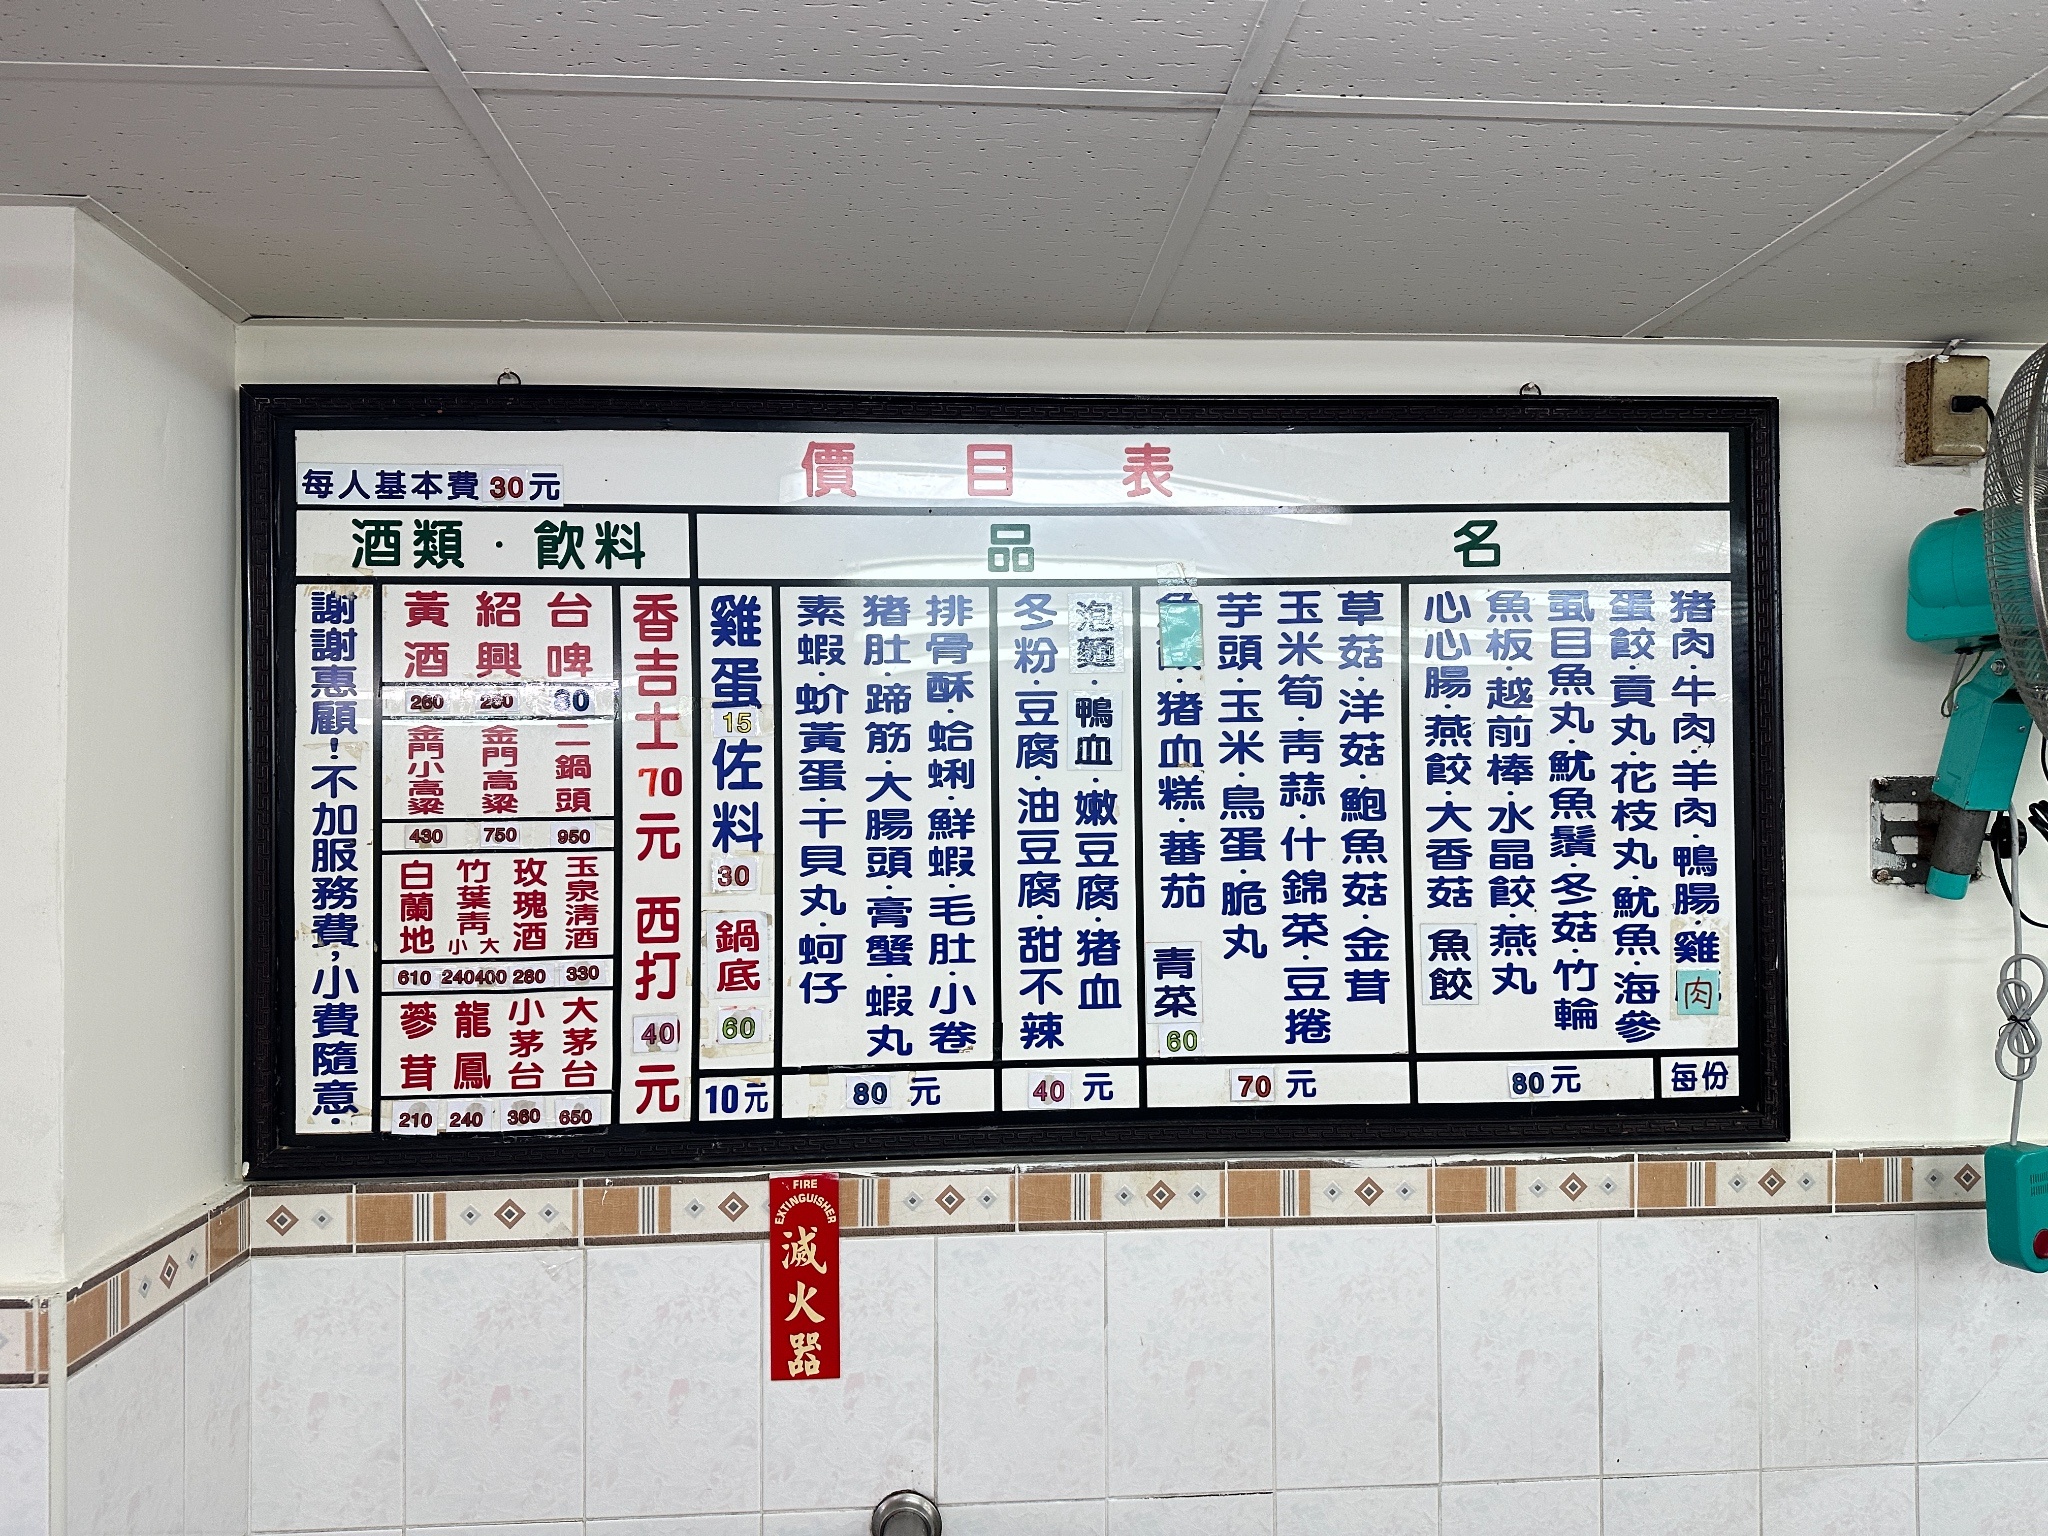 價目表
每人基本費30元
品名
酒類·飲料
豬肉·牛肉·羊肉·鴨腸·雞肉
蛋餃·貢丸·花枝丸·魷魚·海參
虱目魚丸·魷魚鬚·冬菇·竹輪
魚板·越前棒·水晶餃·燕丸
心心腸·燕餃·大香菇 魚餃
每份
80元
草菇·洋菇·鮑魚菇·金茸
玉米筍·青蒜·什錦菜·豆捲
芋頭·玉米·鳥蛋·脆丸
豬血糕·蕃茄
青菜
60
70元
泡麵·鴨血·嫩豆腐·豬血
冬粉·豆腐·油豆腐·甜不辣
40元
排骨酥·蛤蜊·鮮蝦·毛肚·小卷
豬肚·蹄筋·大腸頭·膏蟹·蝦丸
素蝦·蚧黃蛋·干貝丸·蚵仔
80元
雞蛋
15
佐料
30
鍋底
60
10元
香吉士70元 西打40元
台啤
紹興
黃酒
260
二鍋頭
金門高粱
金門小高粱
950
750
430
玉泉清酒
玫瑰酒
竹葉青
小 大
白蘭地
330
280
240 400
610
大茅台
小茅台
龍鳳
蔘茸
650
360
240
210
謝謝惠顧!不加服務費,小費隨意·
FIRE
EXTINGUISHER
滅火器